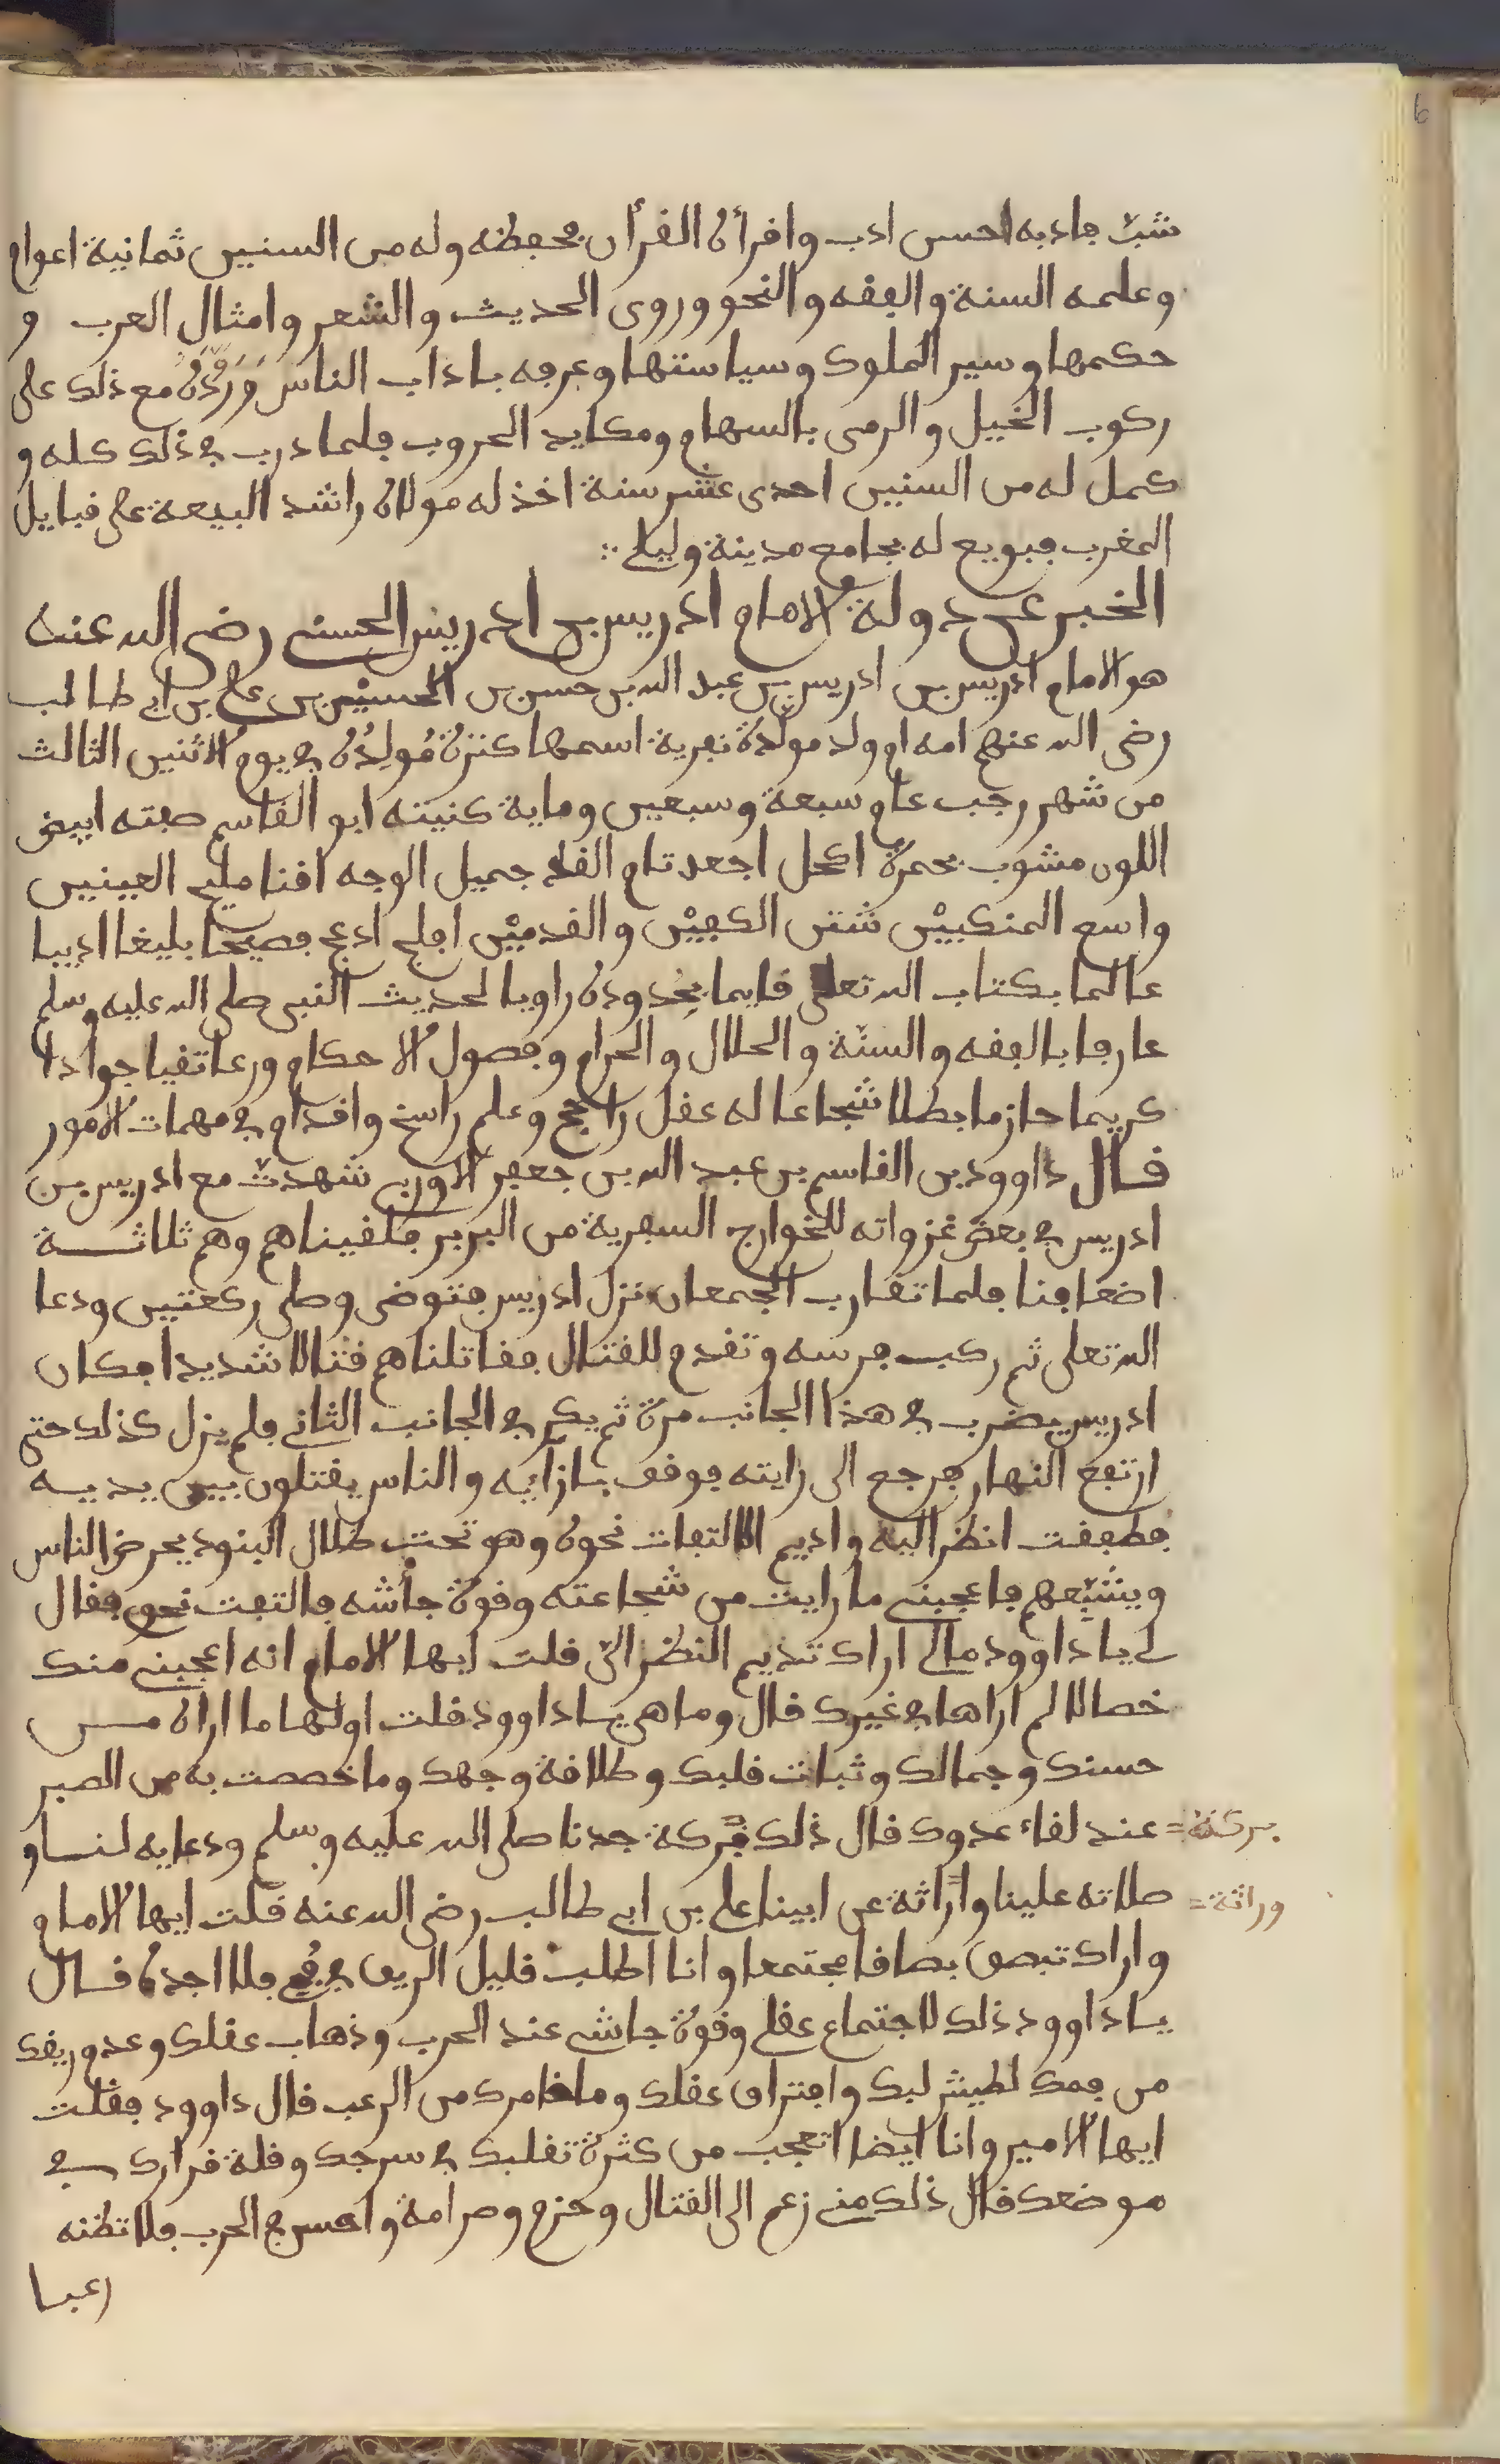 شبّ فادبه احسن ادب واقرأه القرأن فحفظه وله من السنين ثمانية اعوام
وعلمه السنة والفقه والنحو وروى الحديث والشعر وامثال العرب و
حكمها وسير الملوك وسياستها وعرفه باداب الناس ودرّبه مع ذلك على
ركوب الخيل والرمي بالسهام ومكايد الحروب فلما درب في ذلك كله و
كمل له من السنين احدى عشر سنة اخذ له مولاه راشد البيعة على قبايل
المغرب فبويع له بجامع مدينة وليلى
الخبر عن دولة الامام ادريس بن ادريس الحسني رضي الله عنه
هو الامام ادريس بن ادريس بن عبد الله بن حسن بن الحسين بن علي بن ابي طالب
رضى الله عنهم امه ام ولد مولّدة نفزية اسمها كنزة مُولِدُه في يوم الاثنين الثالث
من شهر رجب عام سبعة وسبعين وماية كنيته ابو القاسم صفته ابيض
اللون مشوب بحمرة اكحل اجعد تام القد جميل الوجه اقنا مليح العينين
واسع المنكبيْن شثن الكفيْن والقدميْن افلج ادعج فصيحا بليغا اديبا
عالما بكتاب الله تعلى قايما بحدوده راويا لحديث النبي صلى الله عليه وسلم
عارفا بالفقه والسنّة والحلال والحرام وفصول الاحكام ورعا تقيا جوادا
كريما حازما بطلا شجاعا له عقل راجح وعلم راسخ واقدام في مهمات الامور
قال داوود بن القاسم بن عبد الله بن جعفر الاوربي شهدت مع ادريس بن
ادريس في بعض غزواته للخوارج السفرية من البربر فلقيناهم وهم ثلاثة
اضعافنا فلما تقارب الجمعان نزل ادريس فتوضى وصلى ركعتين ودعا
الله تعلى ثم ركب فرسه وتقدم للقتال فقاتلناهم قتالا شديدا فكان
ادريس يضرب في هذا الجانب مرة ثم يكر في الجانب الثاني فلم يزل كذلك حتى
ارتفع النهار فرجع الى رايته فوقف بازايه والناس يقتلون بين يديه
فطفقت انظر اليه واديم الالتفات نحوه وهو تحت ظلال البنود يحرض الناس
ويشجّعهم فاعجبني ما رايت من شجاعته وقوة جأشه فالتفت نحوي فقال
لي يا داوود مالي اراك تديم النظر اليّ قلت ايها الامام انه اعجبني منك
خصالا لم اراها في غيرك قال وما هي يا داوود قلت اولها ما اراه من
حسنك وجمالك وثبات قلبك وطلاقة وجهك وما خصصت به من الصبر
عند لقاء عدوك قال ذلك بركة جدنا صلى الله عليه وسلم ودعايه لنا و
بركة =
صلاته علينا واراثة عن ابينا علي بن ابي طالب رضى الله عنه قلت ايها الامام
وراثة =
واراك تبصق بصاقا مجتمعا وانا اطلب قليل الريق في فمي فلا اجده قال
يا داوود ذلك لاجتماع عقلي وقوة جاشي عند الحرب وذهاب عقلك وعدو ريقك
من فمك لطيش لبك وافتراق عقلك وما خامرك من الرعب قال داوود فقلت
ايها الامير وانا ايضا اتعجب من كثرة تقلبك في سرجك وقلة قرارك في
موضعك قال ذلك مني زعم الى القتال وحزم وصرامة واحسن في الحرب فلا تظنه
رعبا